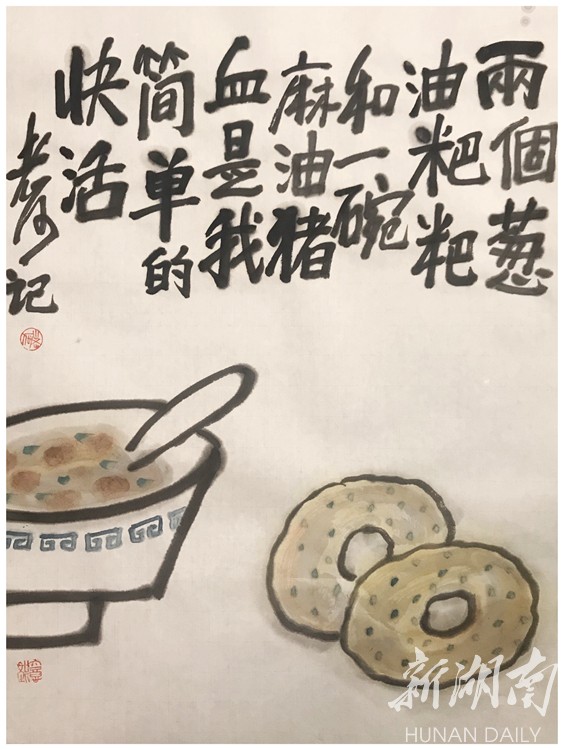 兩個葱
油粑粑
和一碗
麻油猪
血是我
简单的
快活
老何记
新湖南
HUNAN DAILY